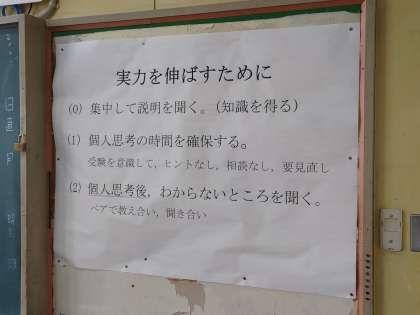 実力を伸ばすために
(0) 集中して説明を聞く。(知識を得る)
(1) 個人思考の時間を確保する。
受験を意識して，ヒントなし，相談なし，要見直し
(2) 個人思考後，わからないところを聞く。
ペアで教え合い，聞き合い